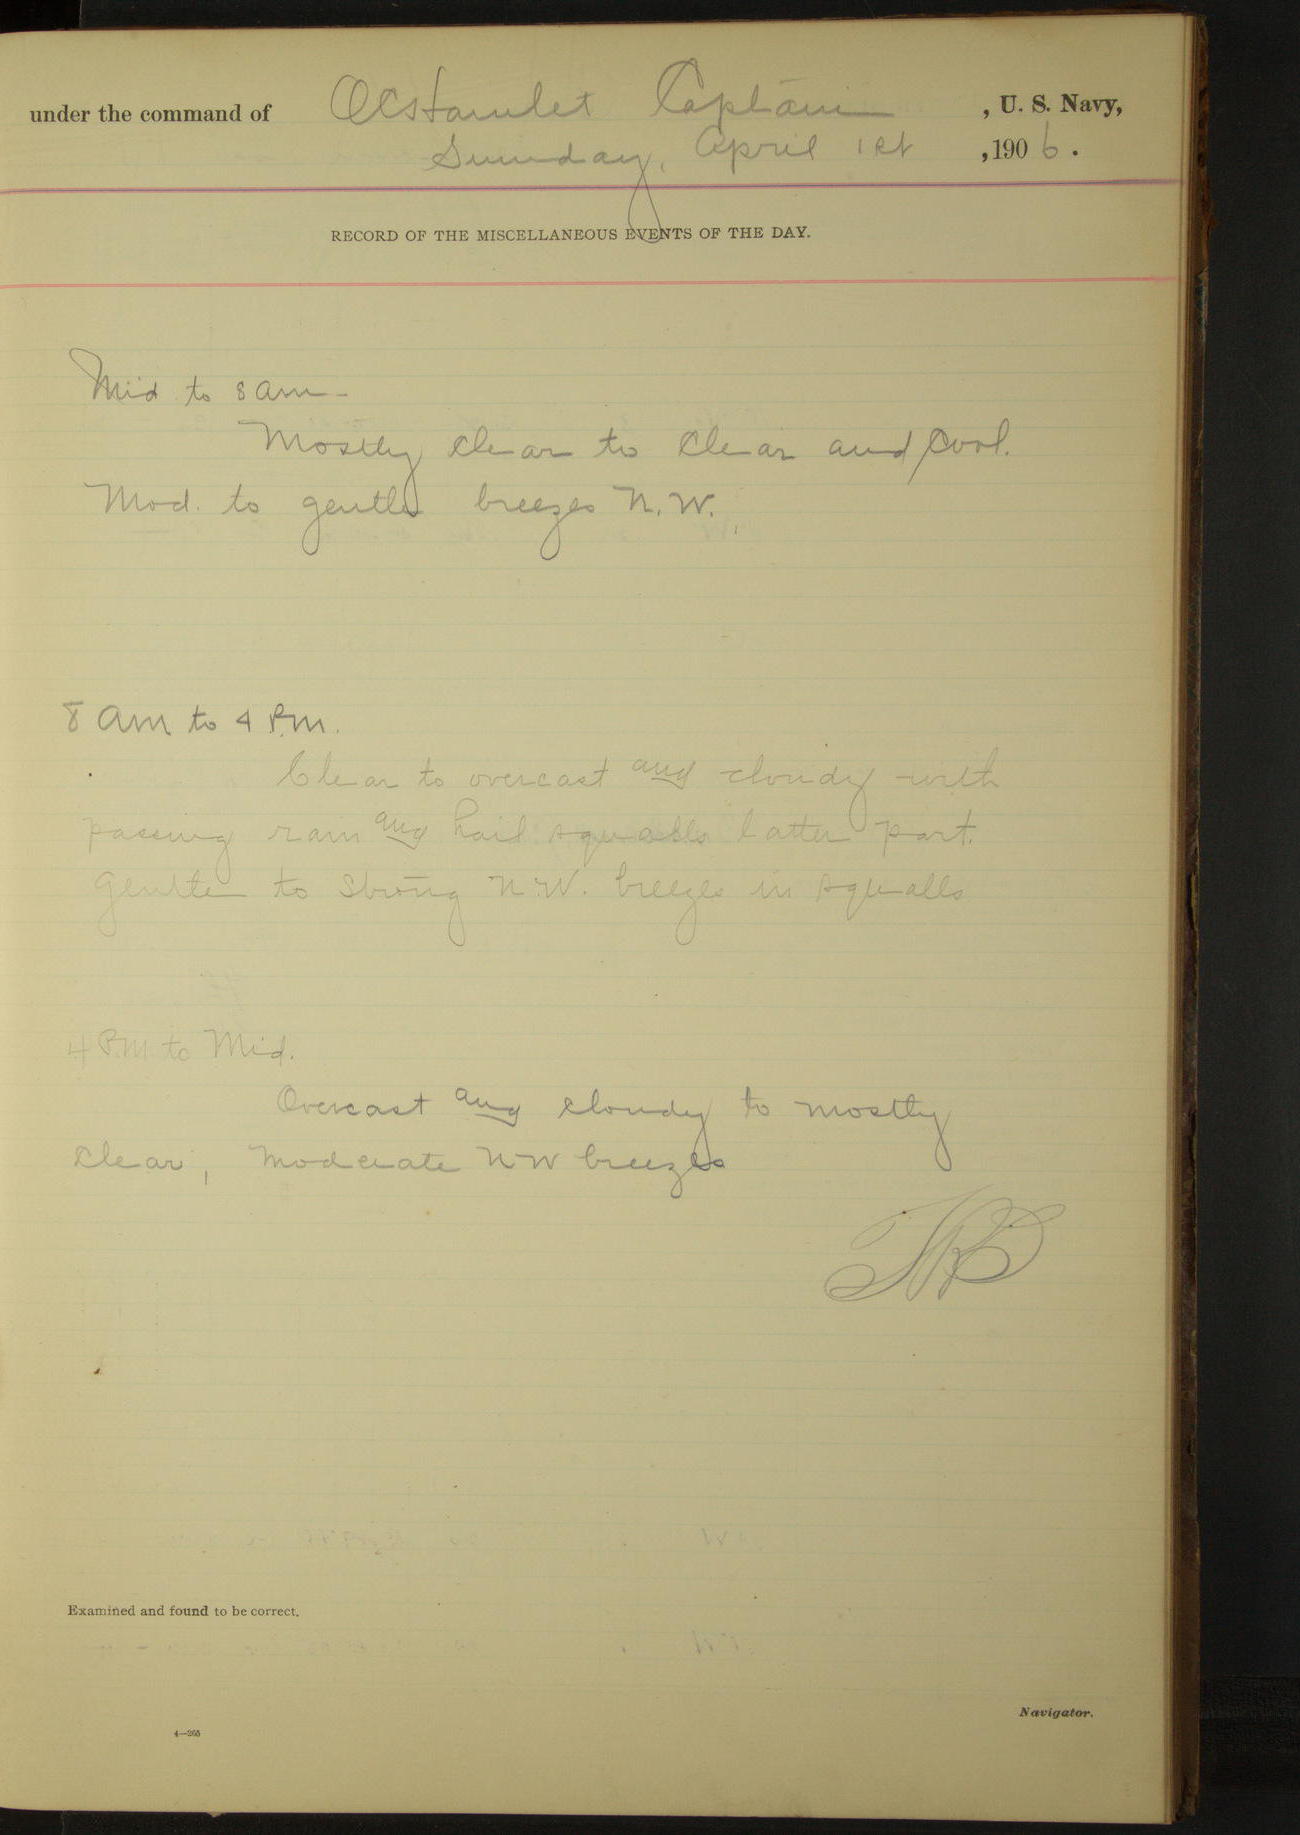 under the command of OC Hamlet Captain , U. S. Navy,
Sunday, April 1st , 190 6 .
RECORD OF THE MISCELLANEOUS EVENTS OF THE DAY.
Mid to 8 am -
Mostly clear to clear and cool.
Mod. to gentle breezes N. W.
8 am to 4 P.M.
Clear to overcast and cloudy with
passing rain and hail squalls latter part.
Gentle to strong N.W. breezes in squalls
4 P.M. to Mid.
Overcast and cloudy to mostly
clear, moderate NW breezes
Examined and found to be correct.
Navigator.
4—265